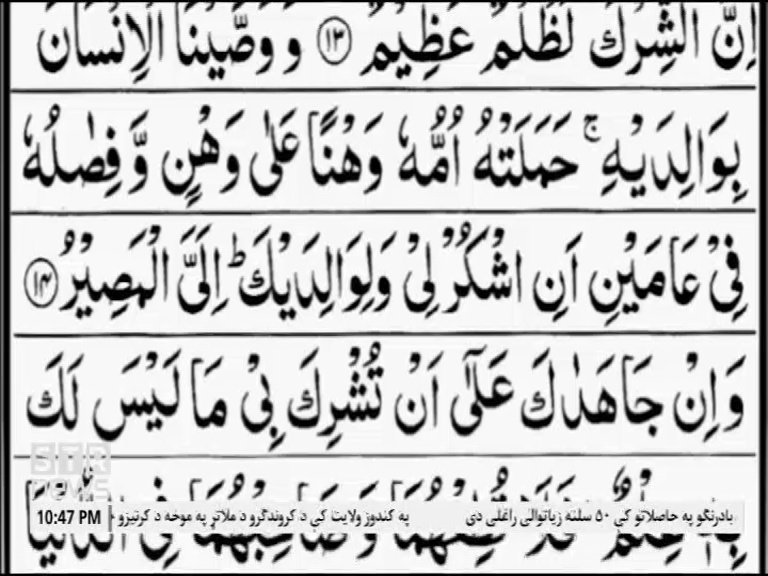 اِنَّ الشِّرْكَ لَظُلْمٌ عَظِيْمٌ ۝۱۳ وَوَصَّيْنَا الْاِنْسَانَ
بِوَالِدَيْهِ ۚ حَمَلَتْهُ اُمُّهٗ وَهْنًا عَلٰى وَهْنٍ وَّفِصٰلُهٗ
فِيْ عَامَيْنِ اَنِ اشْكُرْ لِيْ وَلِوَالِدَيْكَ ؕ اِلَيَّ الْمَصِيْرُ ۝۱۴
وَاِنْ جَاهَدٰكَ عَلٰٓى اَنْ تُشْرِكَ بِيْ مَا لَيْسَ لَكَ
بِهٖ عِلْمٌ فَلَا تُطِعْهُمَا وَصَاحِبْهُمَا فِي الدُّنْيَا
STR
news
10:47 PM
بادرنګو په حاصلاتو کې ۵۰ سلنه زیاتوالی راغلی دی
په کندوز ولایت کې د کروندګرو د ملاتړ په موخه د کرنیزو